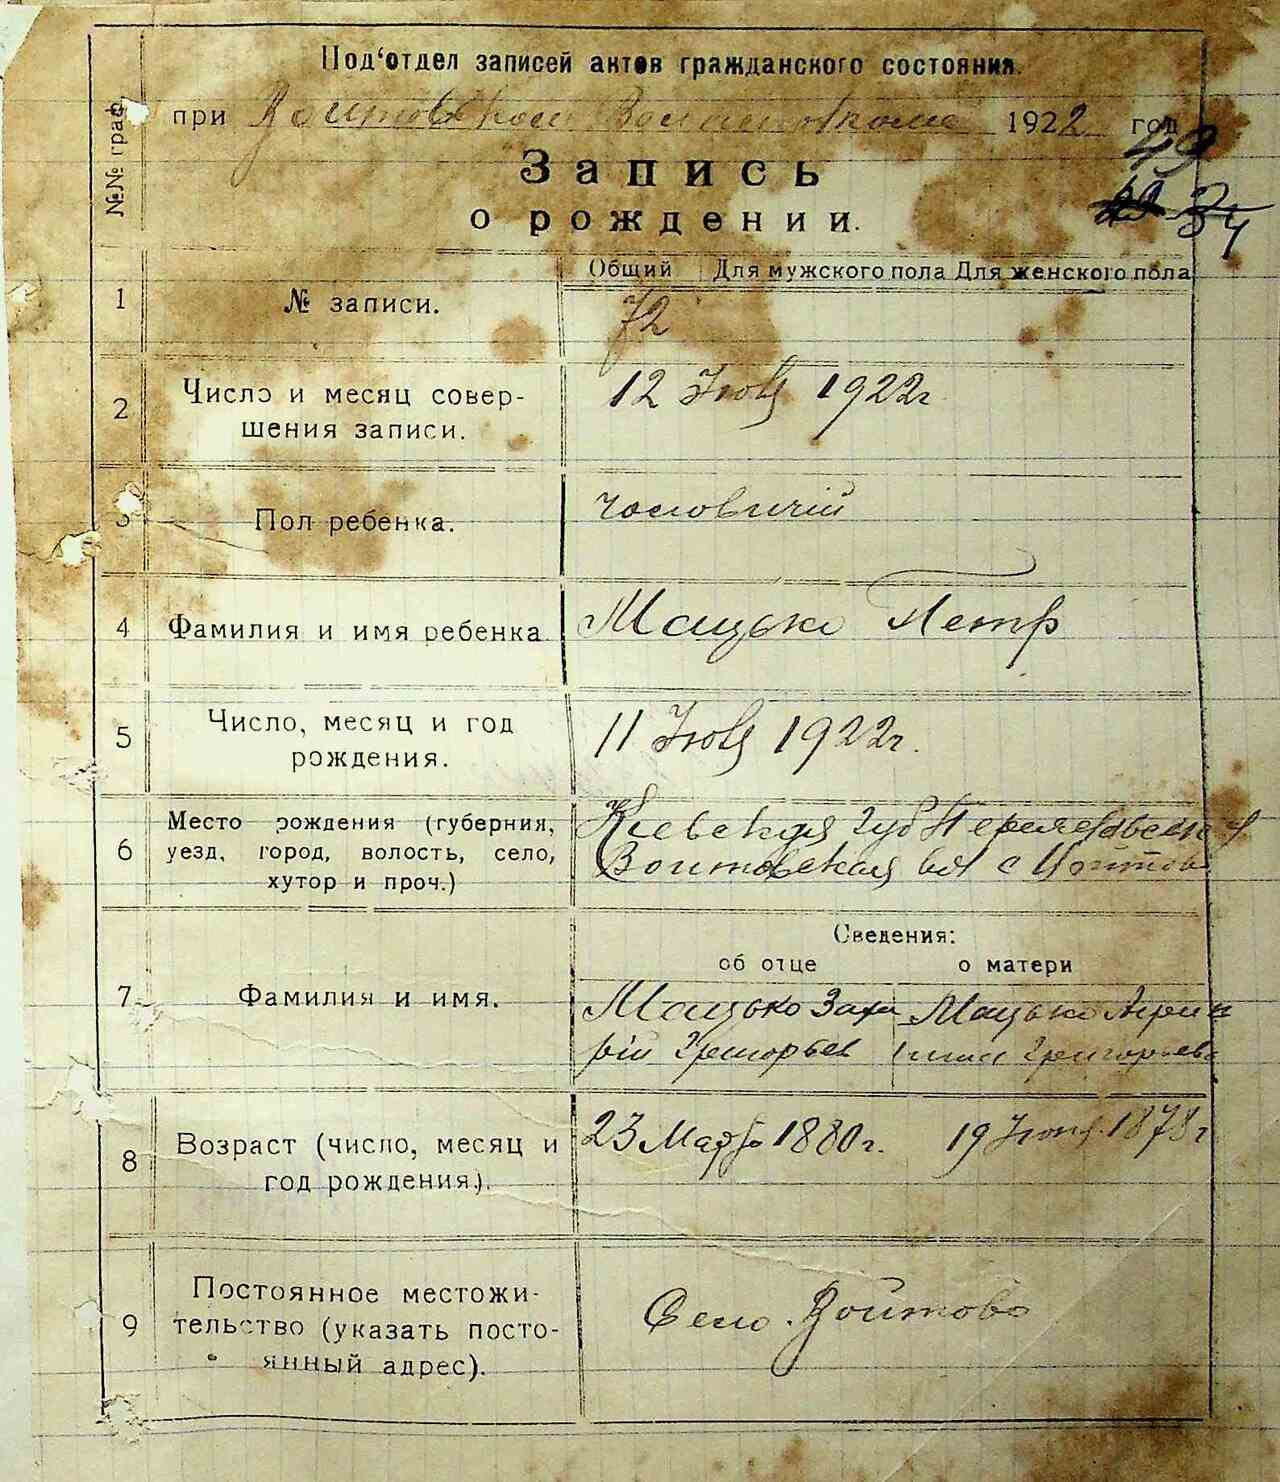 Под'отдел записей актов гражданского состояния.
№№ граф.
при Войтовском Волисполкоме 1922 год
49
34
Запись
о рождении.
Общий Для мужского пола Для женского пола
1 № записи. 72
2 Число и месяц совер-
шения записи.
12 Июля 1922 г
3 Пол ребенка. чоловичій
4 Фамилия и имя ребенка Мацько Петр
5 Число, месяц и год
рождения.
11 Июля 1922 г.
6 Место рождения (губерния,
уезд, город, волость, село,
хутор и проч.)
Киевская губ Переяславск у
Войтовская вол с Войтово
Сведения:
об отце о матери
7 Фамилия и имя.
Мацько Заха
рій Григорьев
Мацько
Григорьева
8 Возраст (число, месяц и
год рождения).
23 Марта 1880 г. 19 1878 г
9 Постоянное местожи-
тельство (указать посто-
янный адрес).
Село Войтово